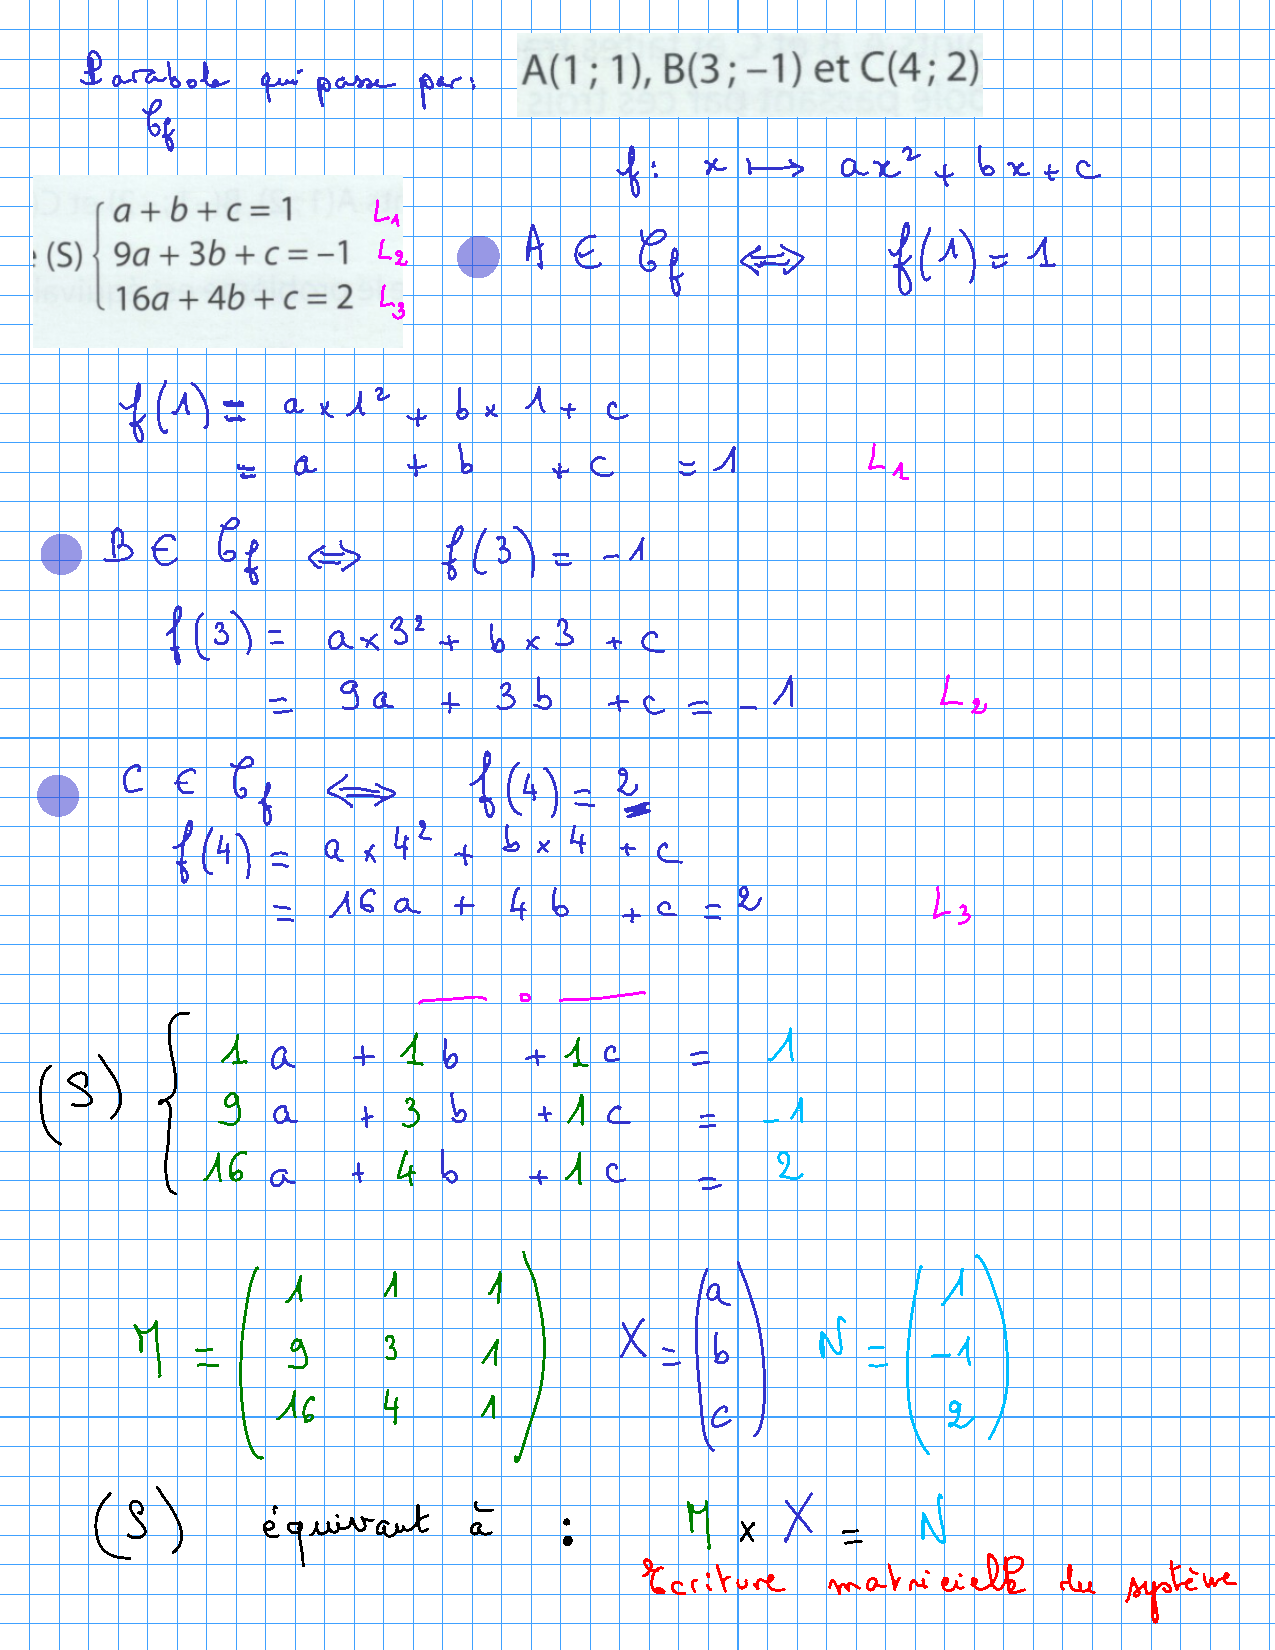 Parabole qui passe par : A(1 ; 1), B(3 ; –1) et C(4 ; 2)
𝒞f
f : x ⟼ ax² + bx + c
(S) { a + b + c = 1 L₁
9a + 3b + c = –1 L₂
16a + 4b + c = 2 L₃
A ∈ 𝒞f ⟺ f(1) = 1
f(1) = a × 1² + b × 1 + c
= a + b + c = 1 L₁
B ∈ 𝒞f ⟺ f(3) = -1
f(3) = a × 3² + b × 3 + c
= 9a + 3b + c = -1 L₂
C ∈ 𝒞f ⟺ f(4) = 2
f(4) = a × 4² + b × 4 + c
= 16a + 4b + c = 2 L₃
(S) { 1a + 1b + 1c = 1
9a + 3b + 1c = -1
16a + 4b + 1c = 2
M = ( 1 1 1 X = ( a N = ( 1
9 3 1 b -1
16 4 1 ) c ) 2 )
(S) équivaut à : M × X = N
Ecriture matricielle du système